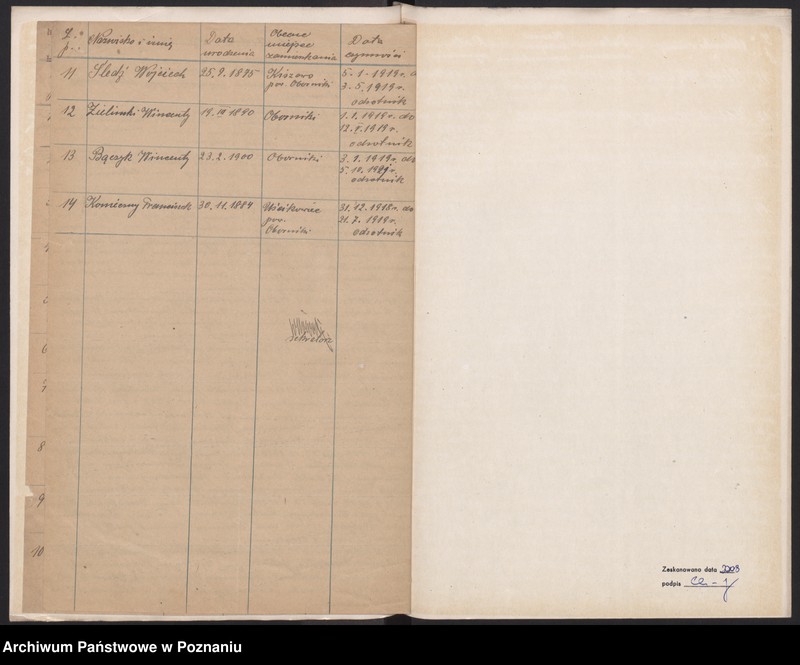 L. p.
Nazwisko i imię
Data urodzenia
Obecne miejsce zamieszkania
Data czynności
11 Śledź Wojciech 25.9.1895 Kiszewo pow. Oborniki 5.1.1919r. do 3.5.1919r. odwotnik
12 Zieliński Wincenty 19.III 1890 Oborniki 1.1.1919r. do 12.V.1919r. odwotnik
13 Bączyk Wincenty 23.2.1900 Oborniki 3.1.1919r. do odwotnik
14 Konieczny Franciszek 30.11.1884 pow. Oborniki 31.12.1918r. do 21.7.1919r. odwotnik
6
7
8
9
10
Zeskanowano data
podpis
Archiwum Państwowe w Poznaniu